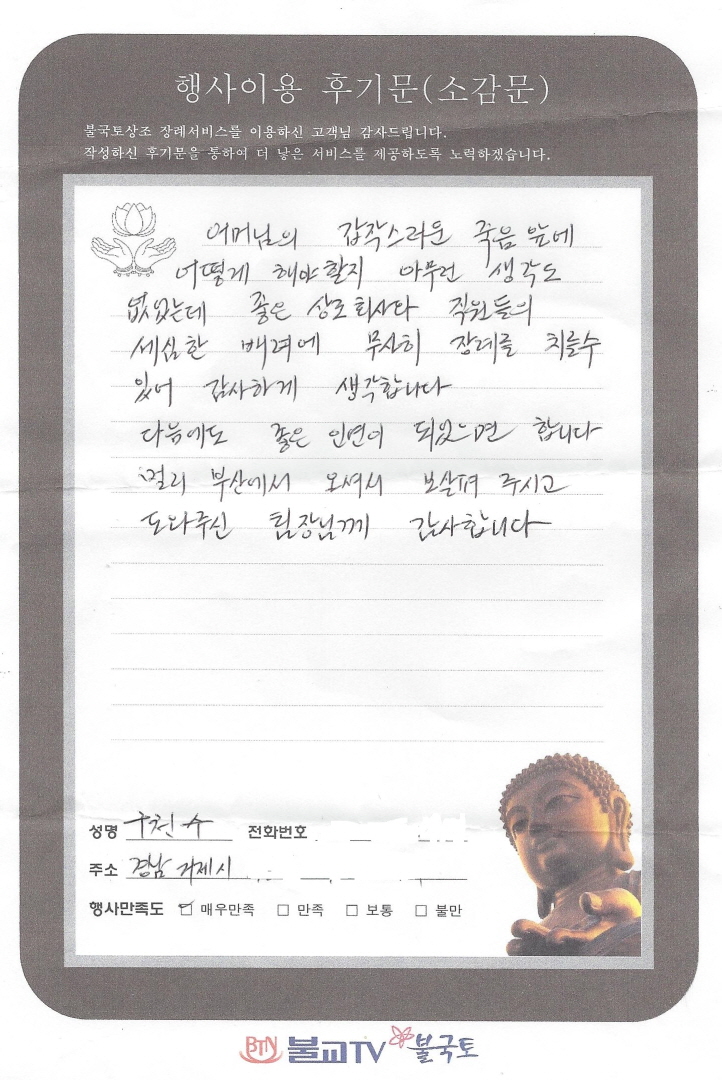 행사이용 후기문(소감문)
불국토상조 장례서비스를 이용하신 고객님 감사드립니다.
작성하신 후기문을 통하여 더 낳은 서비스를 제공하도록 노력하겠습니다.
어머님의 갑작스러운 죽음 앞에
어떻게 해야할지 아무런 생각도
없었는데 좋은 상조회사다 직원들의
세심한 배려에 무사히 장례를 치를수
있어 감사하게 생각합니다
다음에도 좋은 인연이 되었으면 합니다
멀리 부산에서 오셔서 보살펴 주시고
도와주신 팀장님께 감사합니다
성명 구천수 전화번호
주소 경남 거제시
행사만족도 ☑ 매우만족 □ 만족 □ 보통 □ 불만
BTN 불교TV 불국토